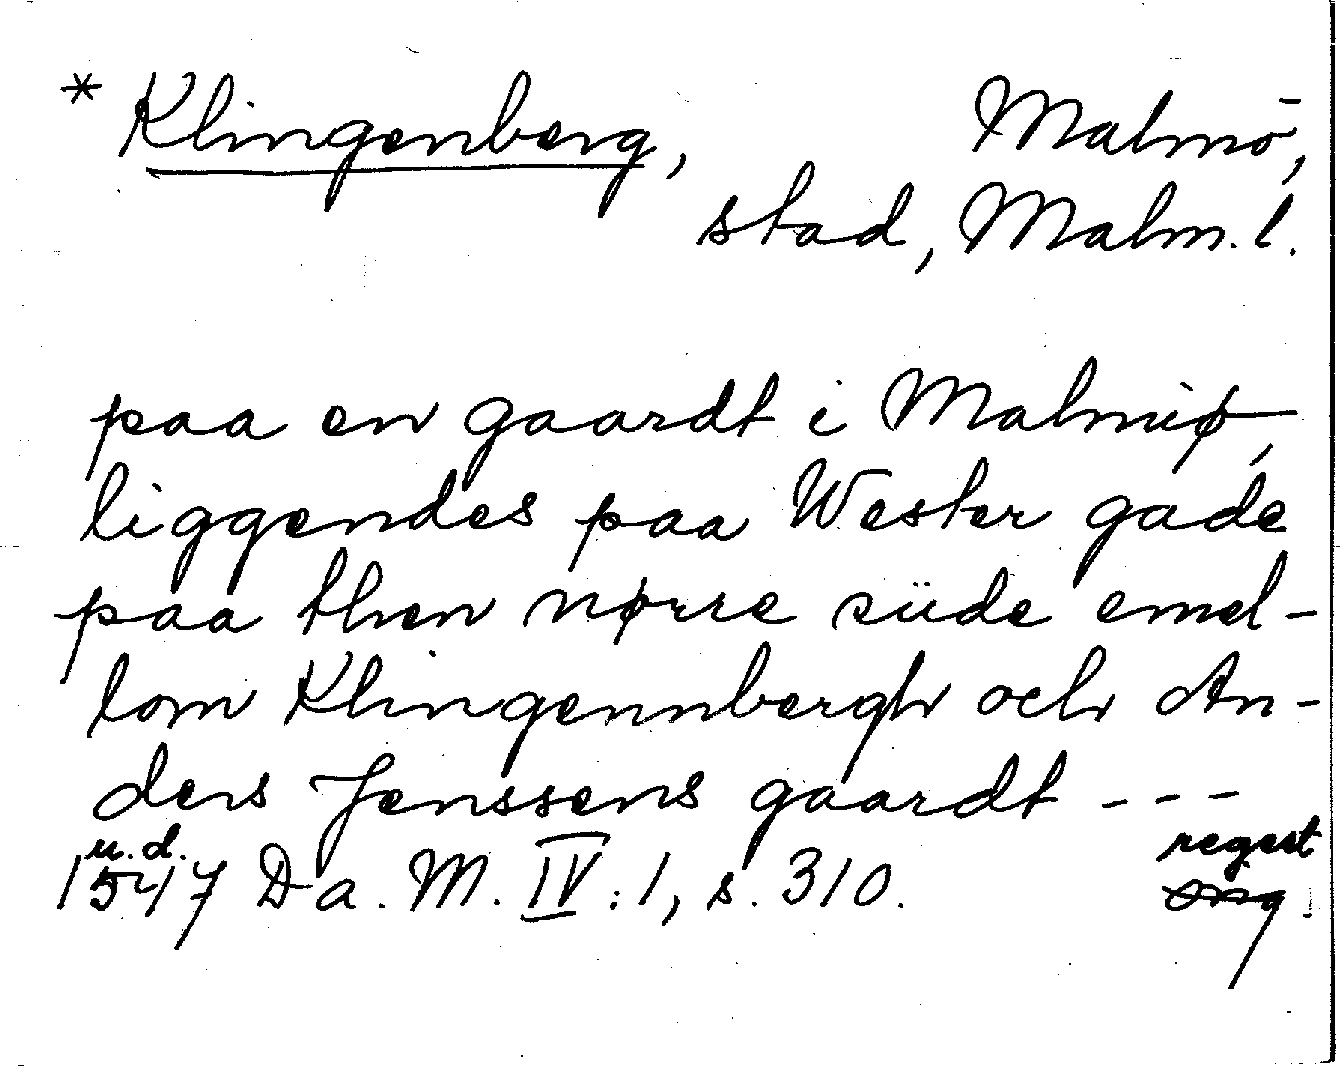 * Klingenberg, Malmö,
stad, Malm. l.
paa en gaardt i Malmiø,
liggendes paa Wester gade
paa then nørre süde emel-
lom Klingennbergh och An-
ders Jenssens gaardt ---
u.d. regest
1547 Da. M. IV:1, s. 310.